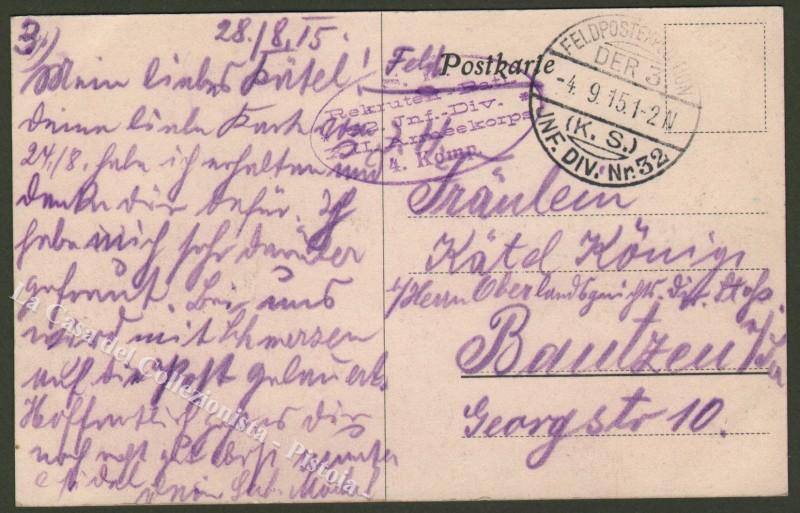 3)
28./8.15.
Mein liebes Kätel!
deine liebe Karte vom
24./8. habe ich erhalten und
danke dir dafür. Ich
habe mich sehr darüber
gefreut. Bei uns
wird mit Schmerzen
auf die Post gelauert.
Hoffentlich geht es dir
noch recht gut
Feld
Postkarte
Rekruten-Depot
Inf.-Div.
Armeekorps
4. Komp.
FELDPOSTEXPEDITION
DER 3
-4. 9. 15. 1-2 N
(K. S.)
INF. DIV. Nr. 32
Fräulein
Kätel König
Herrn Oberlandsgerichts
Bautzen
Georgstr 10.
La Casa del Collezionista - Pistoia